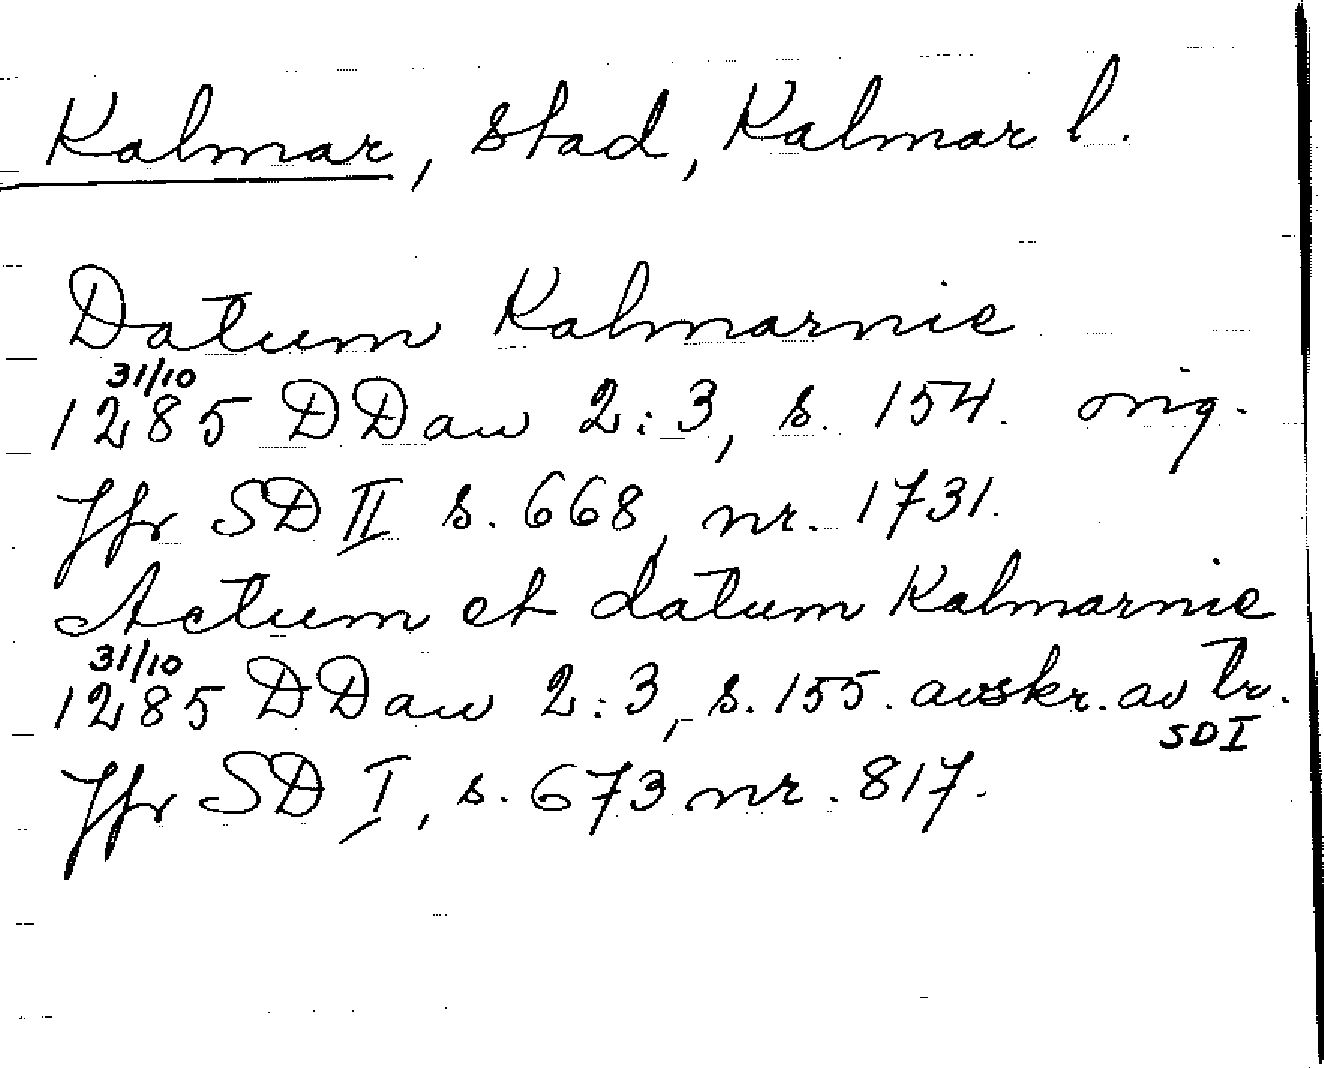 Kalmar, stad, Kalmar l.
Datum Kalmarnie
31/10
1285 DDan 2:3, s. 154. orig.
Jfr SD II s. 668, nr. 1731.
Actum et datum Kalmarnie
31/10
1285 DDan 2:3, s. 155. avskr. av tr.
SD I
Jfr SD I, s. 673 nr. 817.